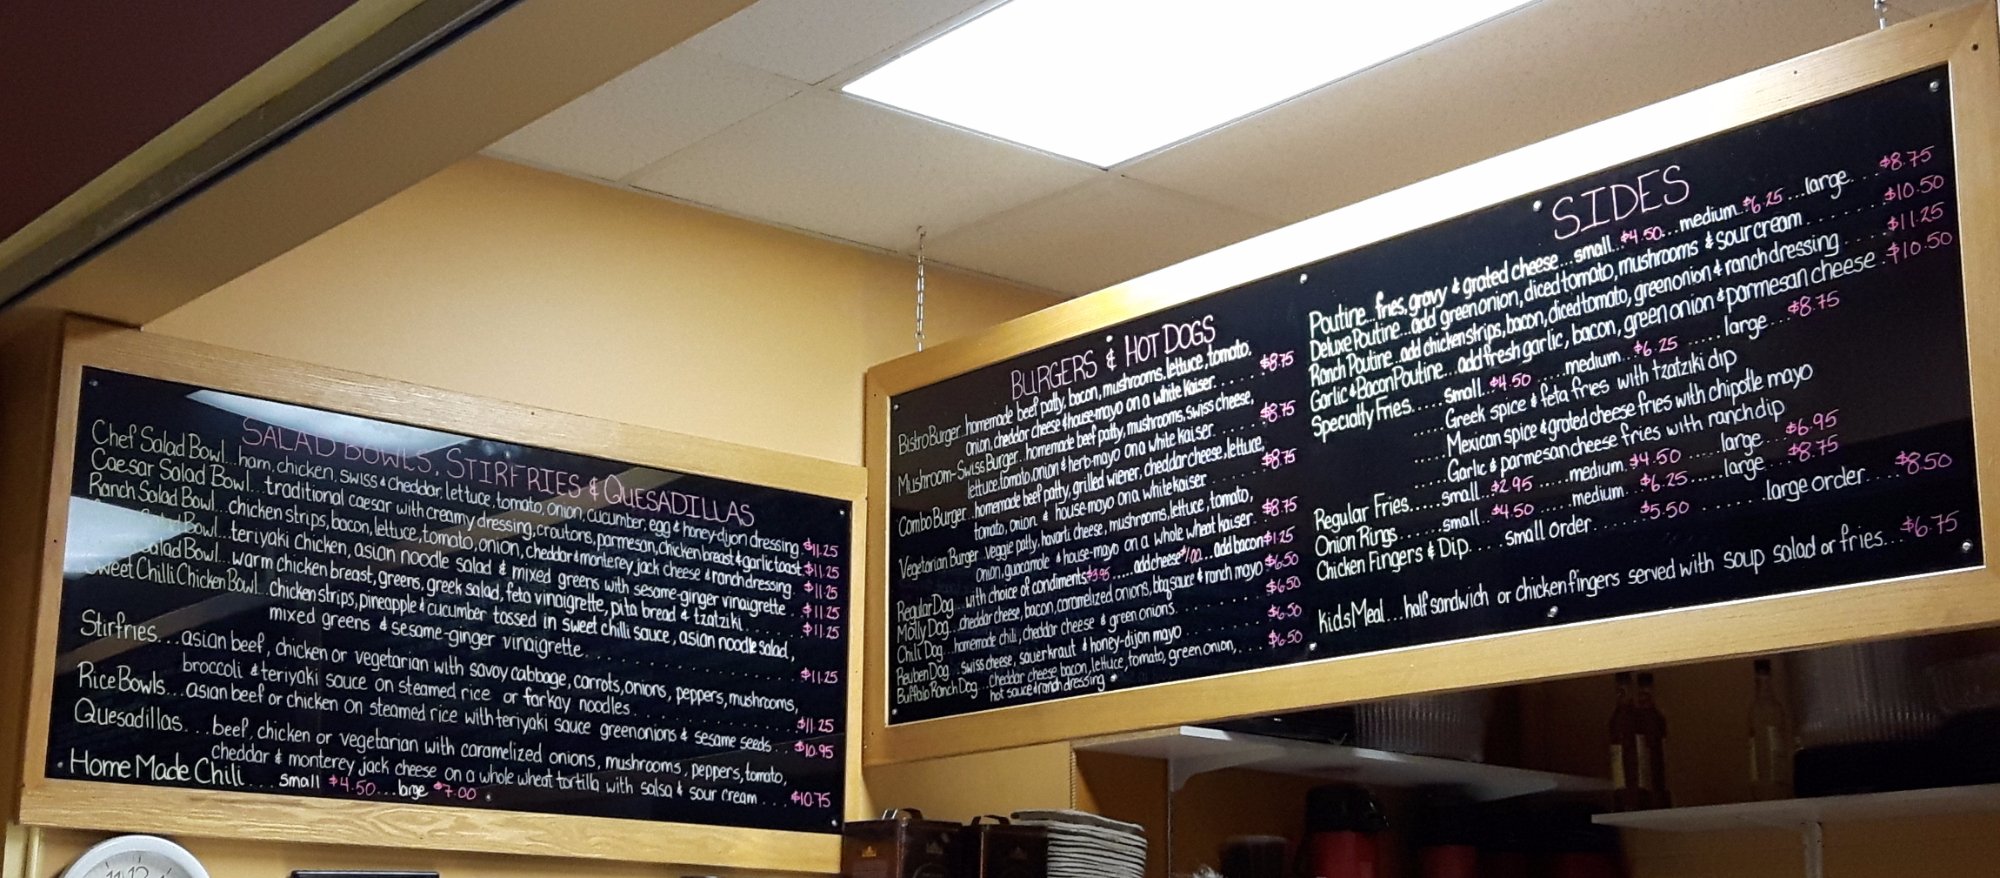 SALAD BOWLS, STIRFRIES & QUESADILLAS
Chef Salad Bowl...ham, chicken, swiss & cheddar, lettuce, tomato, onion, cucumber, egg & honey-dijon dressing. $11.25
Caesar Salad Bowl...traditional caesar with creamy dressing, croutons, parmesan, chicken breast & garlic toast $11.25
Ranch Salad Bowl...chicken strips, bacon, lettuce, tomato, onion, cheddar & monterey jack cheese & ranch dressing. $11.25
Salad Bowl...teriyaki chicken, asian noodle salad & mixed greens with sesame-ginger vinaigrette . $11.25
Salad Bowl...warm chicken breast, greens, greek salad, feta vinaigrette, pita bread & tzatziki ..... $11.25
Sweet Chilli Chicken Bowl...chicken strips, pineapple & cucumber tossed in sweet chilli sauce, asian noodle salad,
mixed greens & sesame-ginger vinaigrette.......... $11.25
Stirfries...asian beef, chicken or vegetarian with savoy cabbage, carrots, onions, peppers, mushrooms,
broccoli & teriyaki sauce on steamed rice or farkay noodles.......... $11.25
Rice Bowls...asian beef or chicken on steamed rice with teriyaki sauce greenonions & sesame seeds.. $10.95
Quesadillas...beef, chicken or vegetarian with caramelized onions, mushrooms, peppers, tomato,
cheddar & monterey jack cheese on a whole wheat tortilla with salsa & sour cream ... $10.75
Home Made Chili....small $4.50...large $7.00
BURGERS & HOT DOGS
Bistro Burger..homemade beef patty, bacon, mushrooms, lettuce, tomato,
onion, cheddar cheese & house-mayo on a white kaiser...... $8.75
Mushroom-Swiss Burger..homemade beef patty, mushrooms, swiss cheese,
lettuce, tomato, onion & herb-mayo on a white kaiser..... $8.75
Combo Burger..homemade beef patty, grilled wiener, cheddar cheese, lettuce,
tomato, onion & house-mayo on a white kaiser...... $8.75
Vegetarian Burger..veggie patty, havarti cheese, mushrooms, lettuce, tomato,
onion, guacamole & house-mayo on a whole wheat kaiser.. $8.75
Regular Dog...with choice of condiments $3.95.....add cheese $1.00...add bacon $1.25
Molly Dog..cheddar cheese, bacon, caramelized onions, bbq sauce & ranch mayo $6.50
Chili Dog..homemade chili, cheddar cheese & green onions......... $6.50
Reuben Dog..swiss cheese, sauerkraut & honey-dijon mayo ........ $6.50
Buffalo Ranch Dog..cheddar cheese, bacon, lettuce, tomato, green onion,.... $6.50
hot sauce & ranch dressing
SIDES
Poutine...fries, gravy & grated cheese...small..$4.50...medium.$6.25...large.... $8.75
Deluxe Poutine...add green onion, diced tomato, mushrooms & sour cream ....... $10.50
Ranch Poutine..add chicken strips, bacon, diced tomato, green onion & ranch dressing .... $11.25
Garlic & Bacon Poutine...add fresh garlic, bacon, green onion & parmesan cheese . $10.50
Specialty Fries.....small.$4.50....medium...$6.25......large...$8.75
.....Greek spice & feta fries with tzatziki dip
.....Mexican spice & grated cheese fries with chipotle mayo
.....Garlic & parmesan cheese fries with ranch dip
Regular Fries.....small..$2.95.....medium.$4.50.....large...$6.95
Onion Rings.....small..$4.50.....medium..$6.25.....large...$8.75
Chicken Fingers & Dip....small order......$5.50.......large order....$8.50
kids Meal...half sandwich or chicken fingers served with soup salad or fries...$6.75